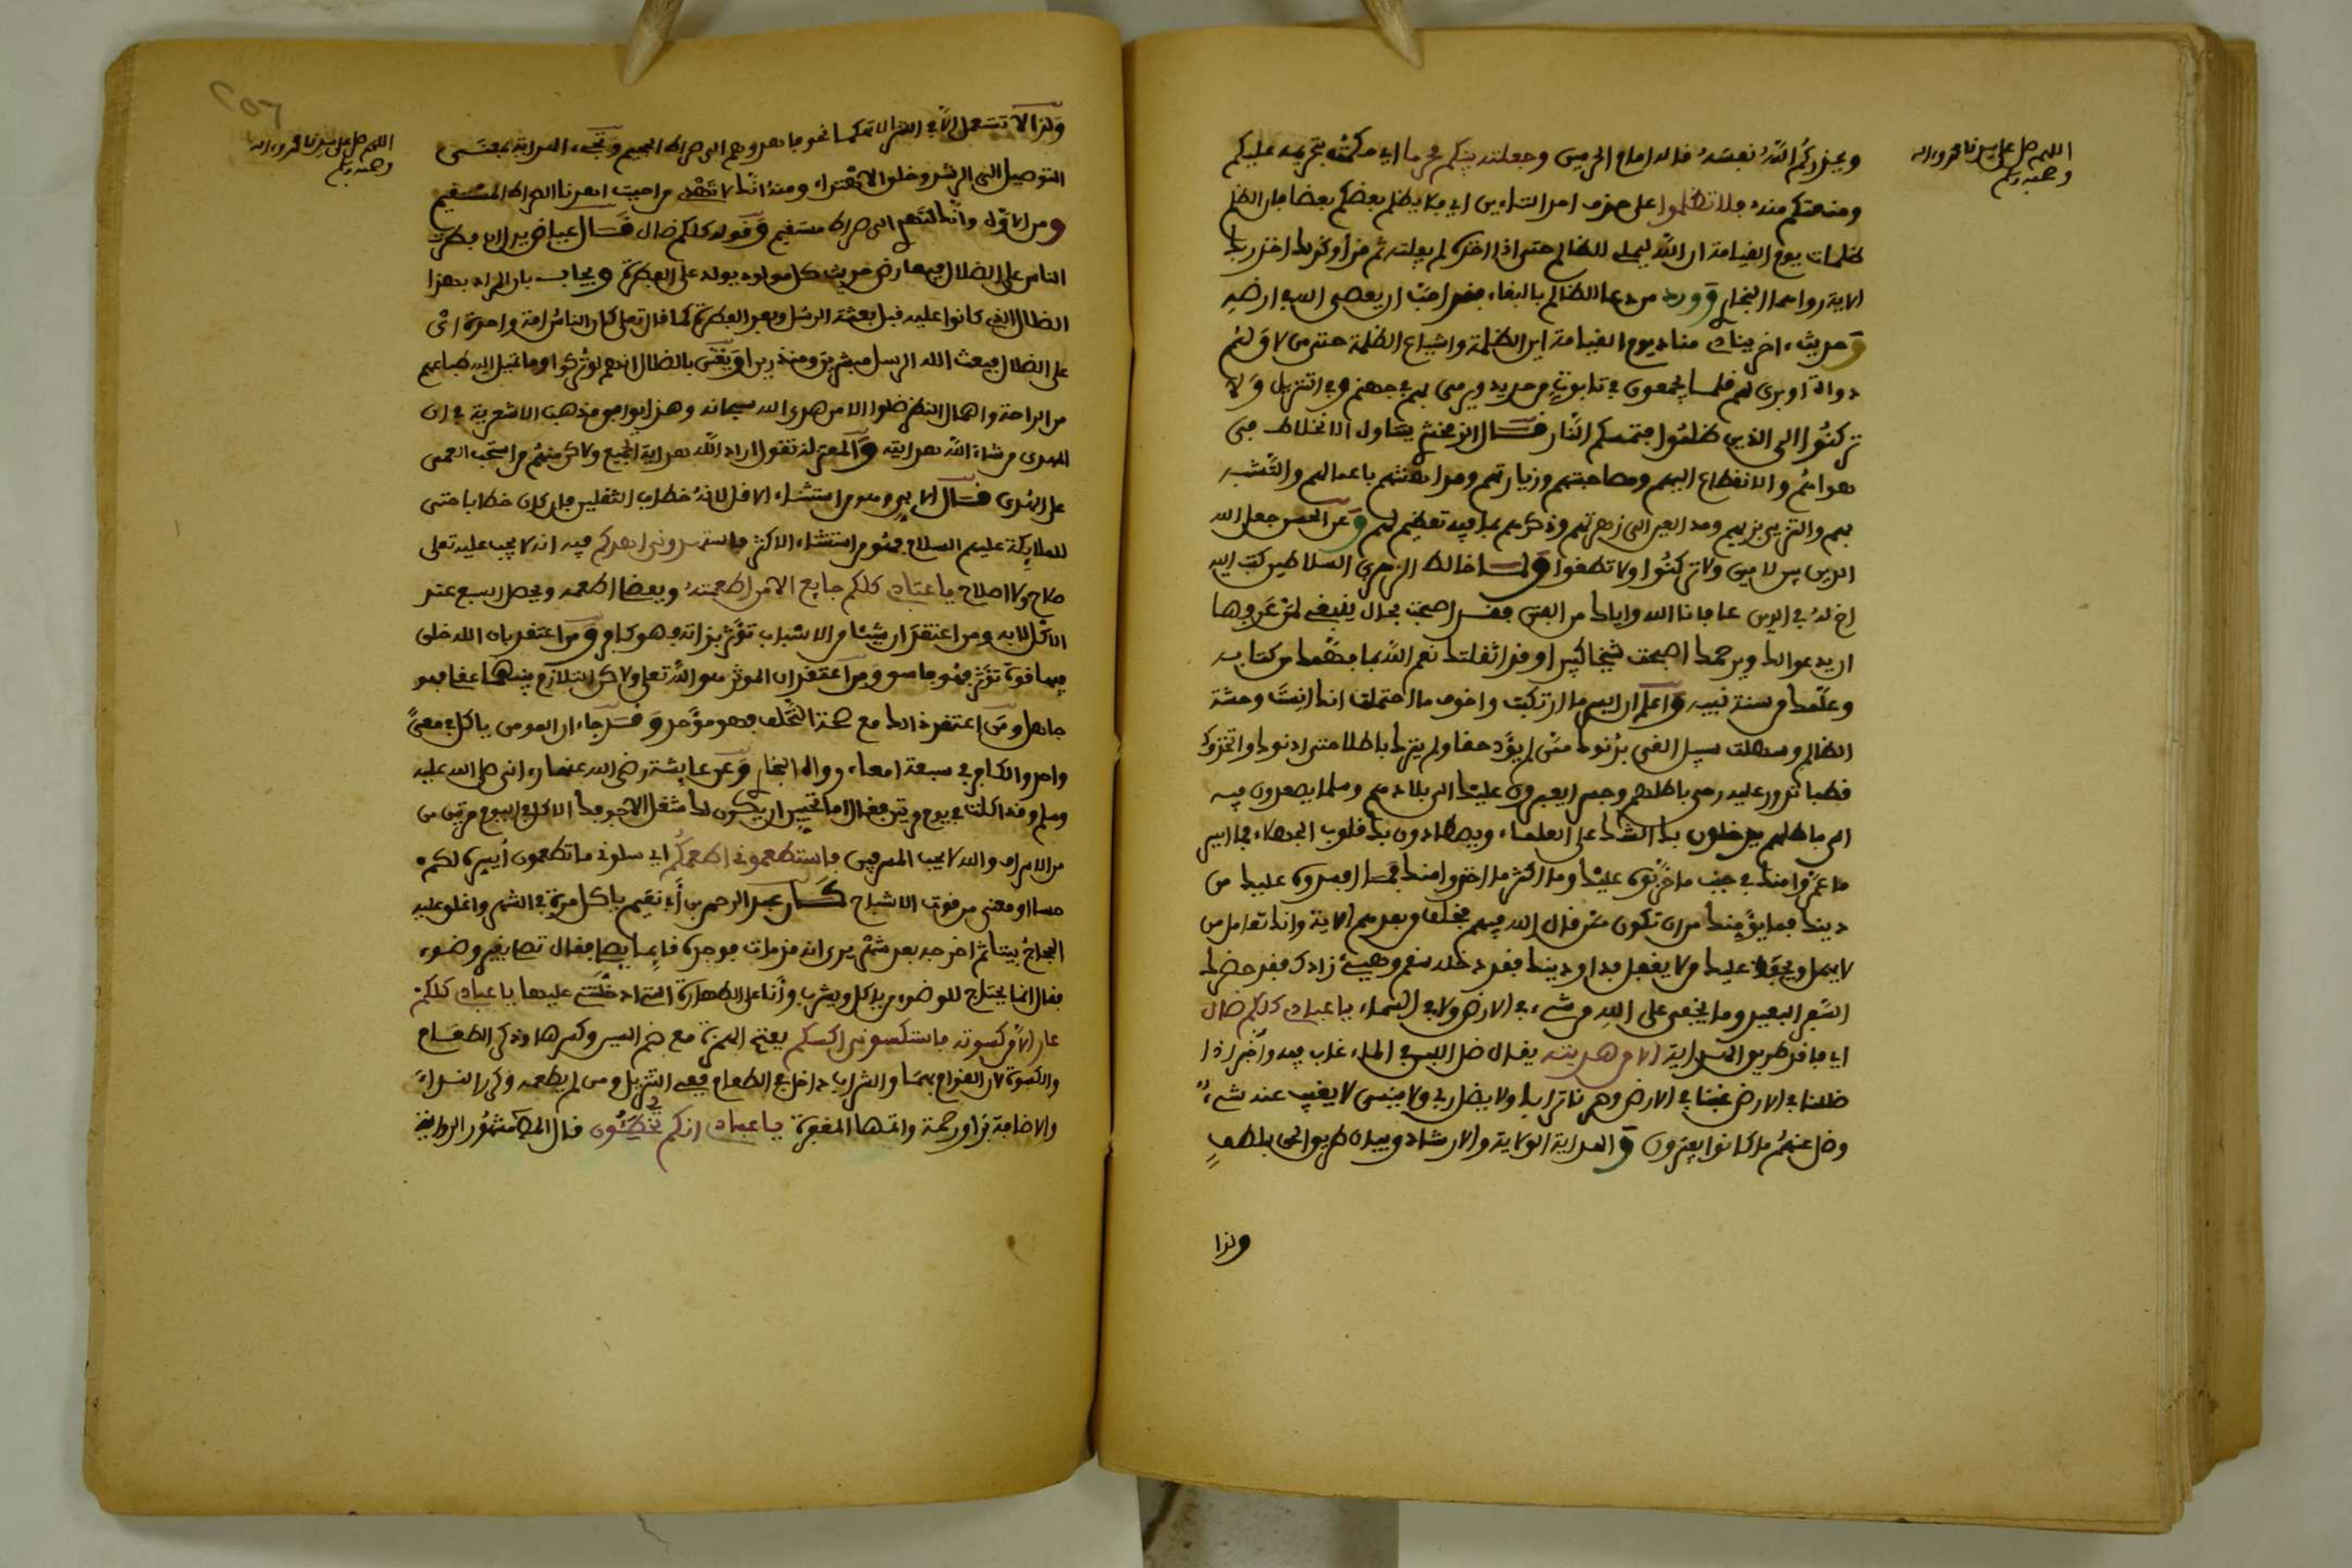 اللهم صل على سيدنا محمد وءاله
وصحبه وسلم
ويحذركم الله نفسه قاله امام الحرمين وجعلته بينكم محرما اي حكمت بتحريمه عليكم
ومنعتكم منه فلا تظلموا على حذف احد التاءين اي فلا يظلم بعضكم بعضا فان الظلم
ظلمات يوم القيامة ان الله ليملي للظالم حتى اذا اخذه لم يفلته ثم قرأ وكذلك اخذ ربك
الاية رواهما البخاري وورد من دعا لظالم بالبقاء فقد احب ان يعصى الله في ارضه
وحديث ءاخر ينادي مناد يوم القيامة اين الظلمة واشياع الظلمة حتى من لاق لهم
دواة او برى لهم قلما يجمعون في تابوت من حديد ويرمى بهم في جهنم وفي التنزيل ولا
تركنوا الى الذين ظلموا فتمسكم النار قال الزمخشري يتناول الانحطاط في
هواهم والانقطاع اليهم ومصاحبتهم وزيارتهم ومداهنتهم باعمالهم والتشبه
بهم والتزيي بزيهم ومد العين الى زهرتهم وذكرهم بما فيه تعظيم لهم وعن الحسن جعل الله
الدين بين لاءين ولا تركنوا ولا تطغوا ولما خالط الزهري السلاطين كتب اليه
اخ له في الدين عافانا الله واياك من الفتن فقد اصبحت بحال ينبغي لمن عرفها
ان يدعو لك ويرحمك اصبحت شيخا كبيرا وقد اثقلتك نعم الله بما فهمك من كتابه
وعلمك من سنة نبيه واعلم ان ايسر ما ارتكبت واخف ما احتملت انك انست وحشة
الظالم وسهلت سبيل الغي بدنوك ممن لم يؤد حقا ولم يترك باطلا حتى ادنوك واتخذوك
قطبا تدور عليه رحى باطلهم وجسرا يعبرون عليك الى بلائهم وسلما يصعدون فيه
الى باطلهم يدخلون بك الشك على العلماء ويصطادون بك قلوب الجهلاء فما ايسر
ما عمروا منك في جنب ما خربوه عليك وما اكثر ما اخذوا منك فيما افسدوه عليك من
دينك فما يؤمنك من ان تكون ممن قال الله فيهم فخلف من بعدهم الاية وانك تعامل من
لا يجهل ويحفظ عليك من لا يغفل فداو دينك فقد دخله سقم وهيئ زادك فقد حضرك
السفر البعيد وما يخفى على الله من شيء في الارض ولا في السماء يا عبادي كلكم ضال
اي فاقد طريق الهداية الا من هديته يقال ضل اللبن في الماء غاب فيه وأءذا
ضللنا في الارض غبنا في الارض وصرنا ترابا ولا يضل ربي ولا ينسى لا يغيب عنه شيء
وضل عنهم ما كانوا يفترون والهداية الولاية والارشاد وبيان طريق الحق بلطف
ولذا
اللهم صل على سيدنا محمد وءاله
وصحبه وسلم
ولذا لا تستعمل الا في الخير الا تهكما نحو فاهدوهم الى صراط الجحيم وتجيء الهداية بمعنى
التوصيل الى الرشد وخلق الاهتداء ومنه انك لا تهدي من احببت اهدنا الصراط المستقيم
ومن الاول وانك لتهدي الى صراط مستقيم وقوله كلكم ضال قال عياض يدل ان فطرة
الناس على الضلال فيعارض حديث كل مولود يولد على الفطرة ويجاب بان المراد بهذا
الضلال الذي كانوا عليه قبل بعثة الرسل وبعد الفطرة كما قال تعالى كان الناس امة واحدة اي
على الضلال فبعث الله الرسل مبشرين ومنذرين او يعني بالضلال انهم لو تركوا وما تميل اليه طباعهم
من الراحة واهمال النظر ضلوا الا من هدى الله سبحانه وهذا يوافق مذهب الاشعرية في ان
المهدي من شاء الله هدايته والمعتزلة تقول اراد الله هداية الجميع ولاكن منهم من استحب العمى
على الهدى قال الابي وهو من استثناء الاقل لانه خطاب الثقلين فان كان خطابا حتى
للملايكة عليهم السلام فهو من استثناء الاكثر فاستهدوني اهدكم فيه انه لا يجب عليه تعلى
صلاح ولا اصلاح يا عبادي كلكم جايع الا من اطعمته وبعض اطعمه ويحصل الشبع عند
الاكل لا به ومن اعتقد ان شيئا من الاسباب تؤثر بذاته فهو كافر ومن اعتقد بان الله خلق
فيها قوة تؤثر فهو فاسق ومن اعتقد ان الموثر هو الله تعلى ولاكن التلازم بينهما عقلي فهو
جاهل ومن اعتقد ذالك مع صحة التخلف فهو موحد وقد جاء ان المومن ياكل في معى
واحد والكافر في سبعة امعاء رواه البخاري وعن عايشة رضي الله عنها رءاني صلى الله عليه
وسلم وقد اكلت في يوم مرتين فقال اما تحبين ان يكون لك شغل الا جوفك الاكل في اليوم مرتين من
من الاسراف والله لا يحب المسرفين فاستطعموني اطعمكم اي سلوني ما تطعمون أيسره لكم
حسا او معنى من قوت الاشباح كان عبد الرحمن بن أبي نعيم ياكل مرة في الشهر واغلق عليه
الحجاج بيتا ثم اخرجه بعد شهر يرى انه قد مات فوجده قايما يصلي فقال تصلي بغير وضوء
فقال انما يحتاج للوضوء من ياكل ويشرب وأنا على الطهارة التي ادخلتني عليها يا عبادي كلكم
عار الا من كسوته فاستكسوني اكسكم بفتح الهمزة مع ضم السين وكسرها وذكر الطعام
والكسوة لان القوام بهما والشراب داخل في الطعام ففي التنزيل ومن لم يطعمه وذكر
والاضافة تزاو رحمة وانتها المغفرة يا عبادي انكم تخطئون قال مشهور الرواية